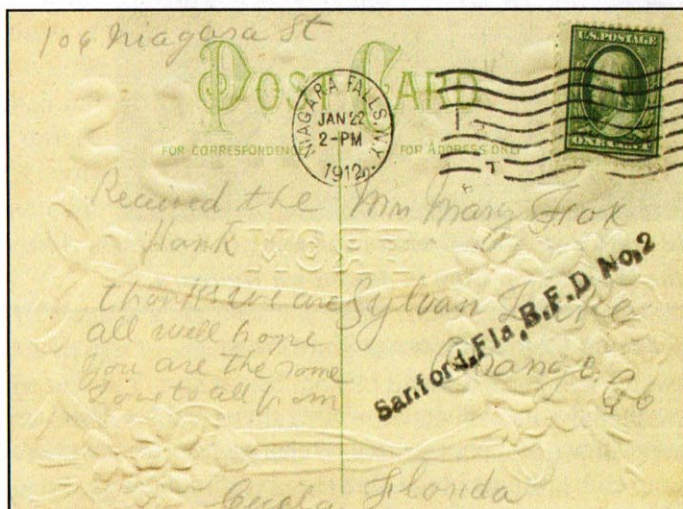 106 Niagara St
U.S. POSTAGE
ONE CENT
POST CARD
NIAGARA FALLS, N.Y.
JAN 22
2-PM
1912
FOR CORRESPONDENCE
FOR ADDRESS ONLY
Received the
Hank
thanks we are
all well hope
you are the same
Love to all from
Cecila
FROM
Mrs Mary Fox
Sylvan Lake
Orange Co
Florida
Sanford, Fla, B.F.D No, 2